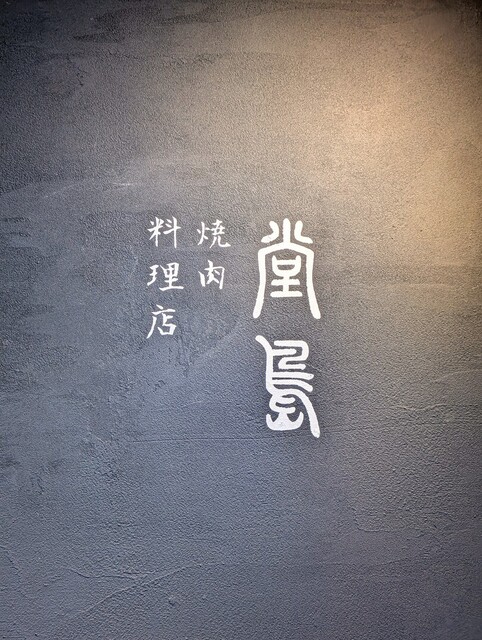 堂島
燒肉
料理店